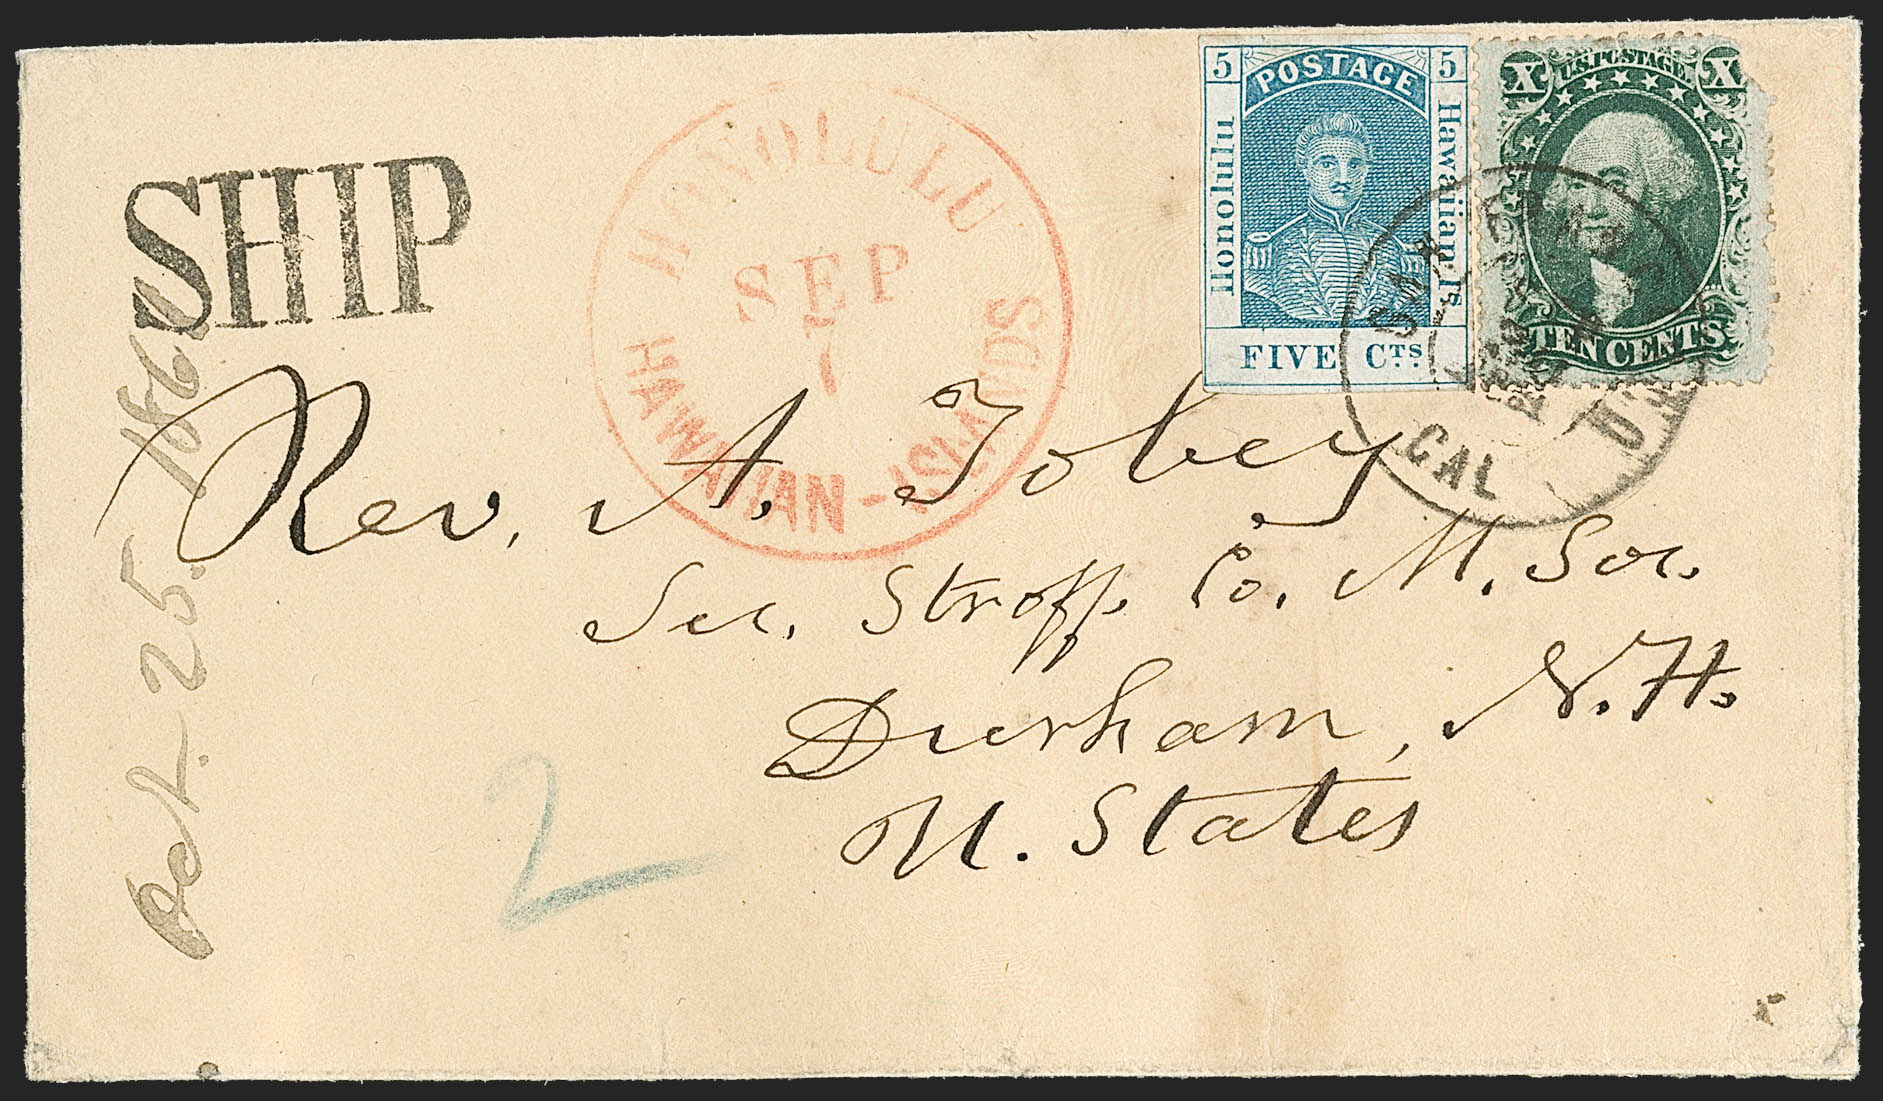 SHIP
HONOLULU
SEP
7
HAWAIIAN-ISLANDS
5 POSTAGE 5
Honolulu
Hawaiian Is.
FIVE Cts.
X U.S. POSTAGE X
TEN CENTS
SAN FRANCISCO
CAL
Rev. A. Tobey
Sec. Stroff. Co. M. Soc.
Durham, N.H.
U. States
2
Oct. 25.